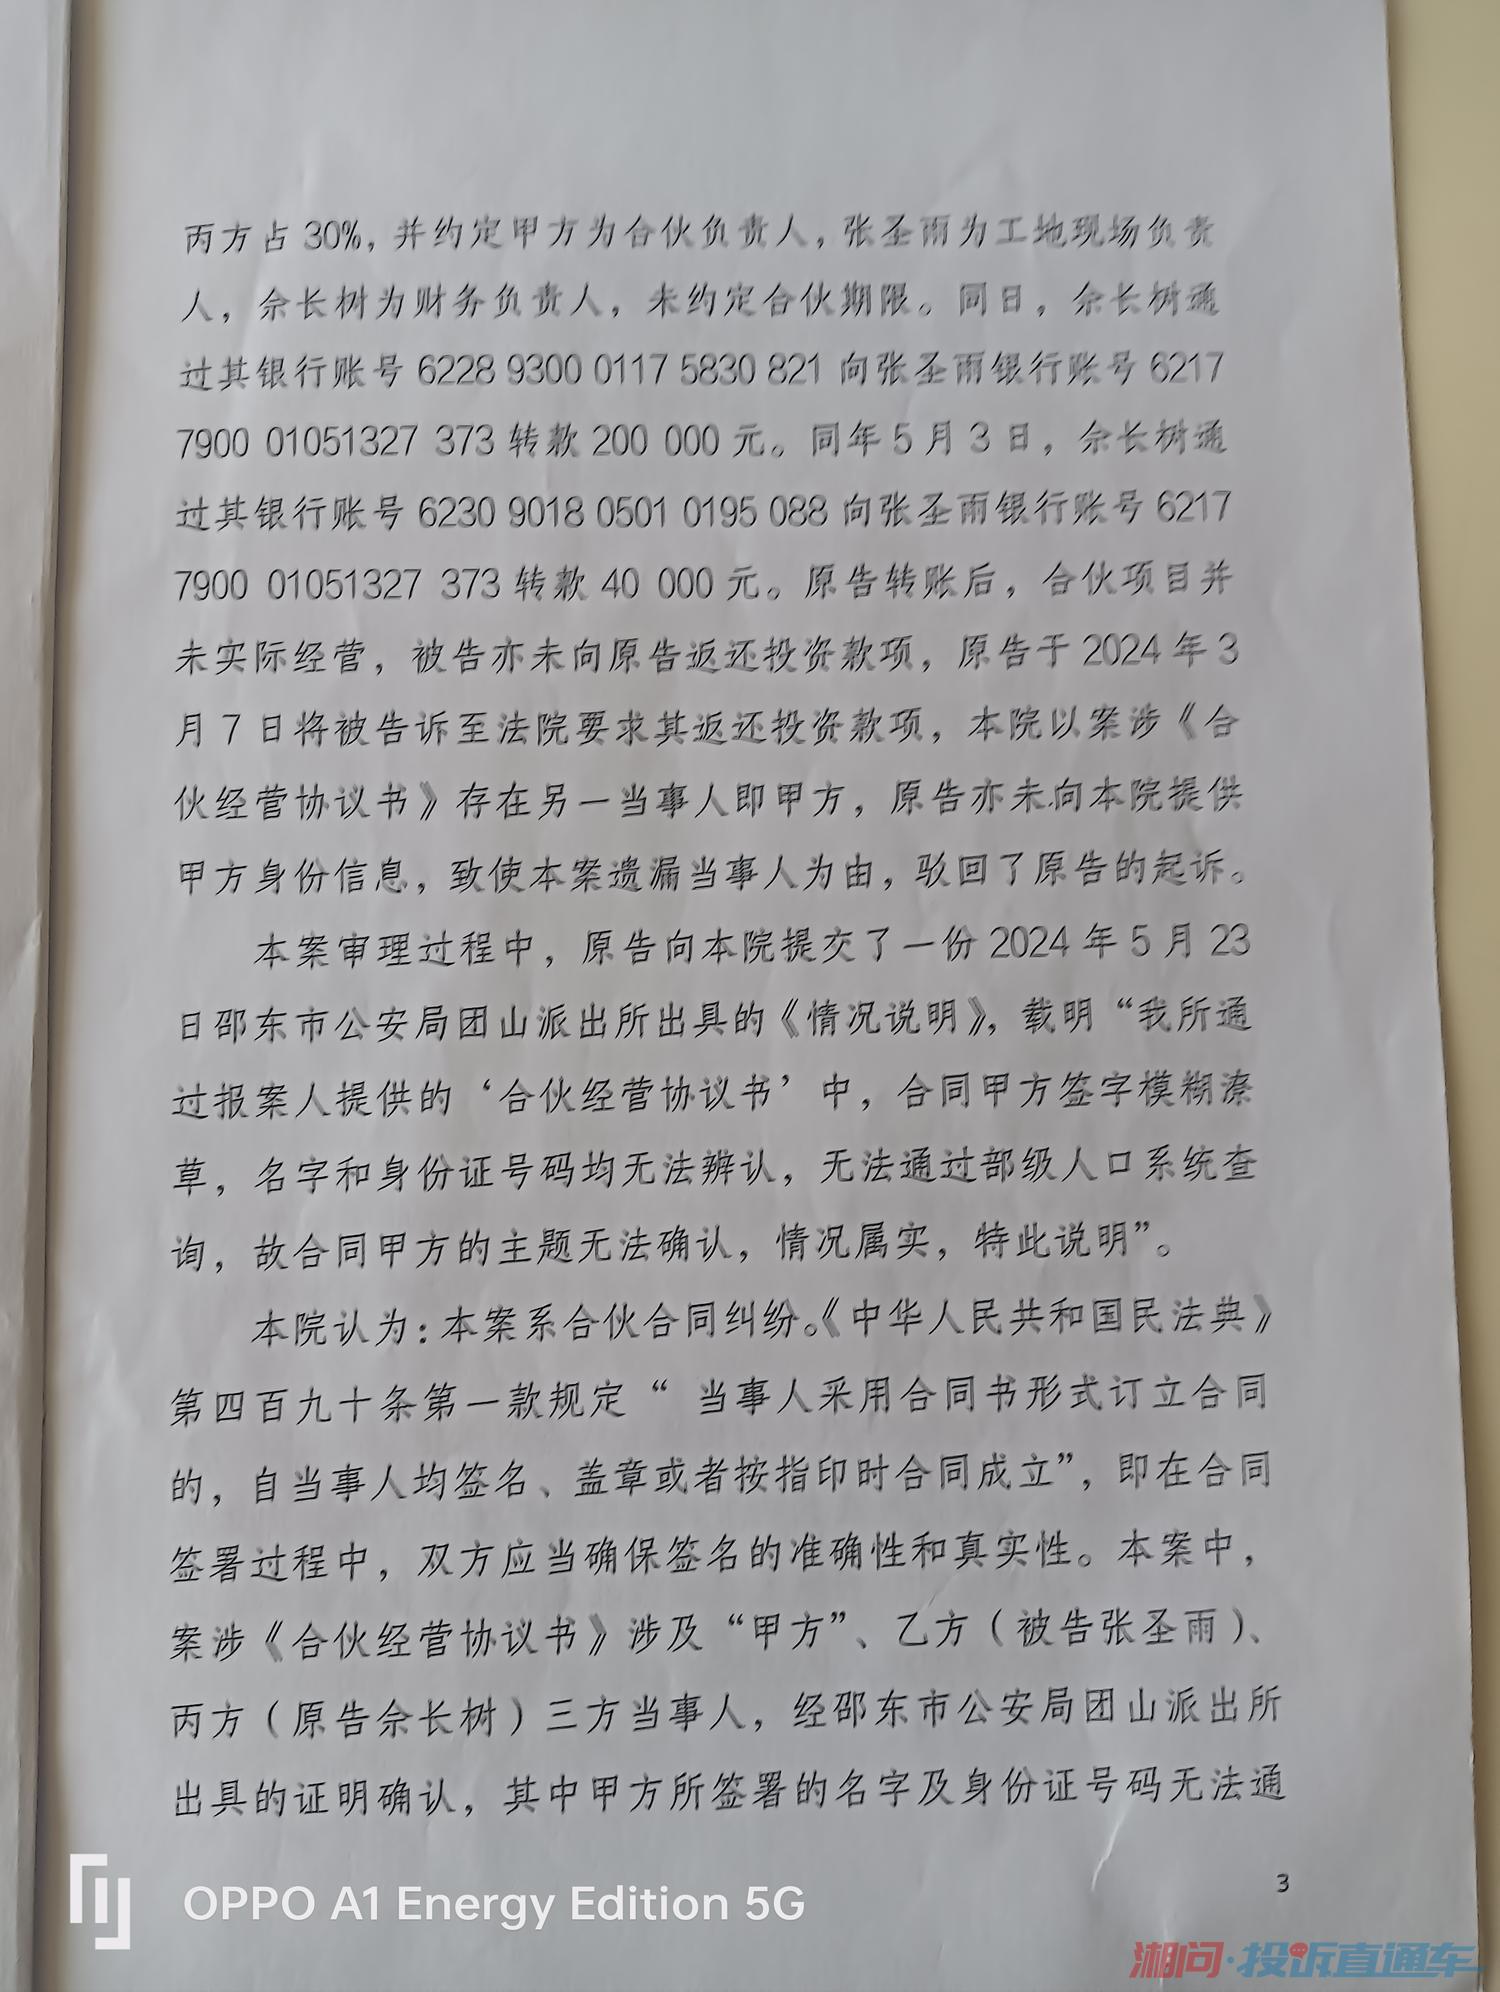 丙方占 30%，并约定甲方为合伙负责人，张圣雨为工地现场负责
人，佘长树为财务负责人，未约定合伙期限。同日，佘长树通
过其银行账号 6228 9300 0117 5830 821 向张圣雨银行账号 6217
7900 01051327 373 转款 200 000 元。同年 5 月 3 日，佘长树通
过其银行账号 6230 9018 0501 0195 088 向张圣雨银行账号 6217
7900 01051327 373 转款 40 000 元。原告转账后，合伙项目并
未实际经营，被告亦未向原告返还投资款项，原告于 2024 年 3
月 7 日将被告诉至法院要求其返还投资款项，本院以案涉《合
伙经营协议书》存在另一当事人即甲方，原告亦未向本院提供
甲方身份信息，致使本案遗漏当事人为由，驳回了原告的起诉。
本案审理过程中，原告向本院提交了一份 2024 年 5 月 23
日邵东市公安局团山派出所出具的《情况说明》，载明“我所通
过报案人提供的‘合伙经营协议书’中，合同甲方签字模糊潦
草，名字和身份证号码均无法辨认，无法通过部级人口系统查
询，故合同甲方的主题无法确认，情况属实，特此说明”。
本院认为：本案系合伙合同纠纷。《中华人民共和国民法典》
第四百九十条第一款规定“ 当事人采用合同书形式订立合同
的，自当事人均签名、盖章或者按指印时合同成立”，即在合同
签署过程中，双方应当确保签名的准确性和真实性。本案中，
案涉《合伙经营协议书》涉及“甲方”、乙方（被告张圣雨）、
丙方（原告佘长树）三方当事人，经邵东市公安局团山派出所
出具的证明确认，其中甲方所签署的名字及身份证号码无法通
3
OPPO A1 Energy Edition 5G
湘问·投诉直通车